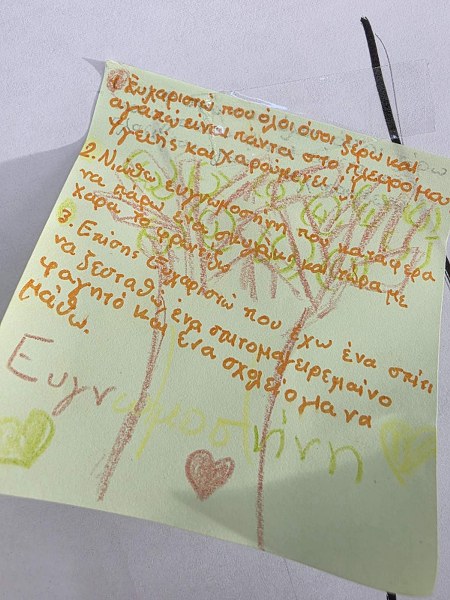 1. Ευχαριστώ που όλοι όσοι ξέρω και
αγαπώ είναι πάντα στο πλευρό μου
υγιείς και χαρούμενοι
2. Νιώθω ευγνωμοσήνη που κατάφερα
να πάρω ένα σκυλάκι και τώρα με
χαρά το φροντίζω
3. Επίσης ευχαριστώ που έχω ένα σπίτι
να ζεσταθώ, ένα σπιτομαγειρεμαίνο
φαγητό και ένα σχολείο για να
μάθω.
Ευγνωμοσήνη